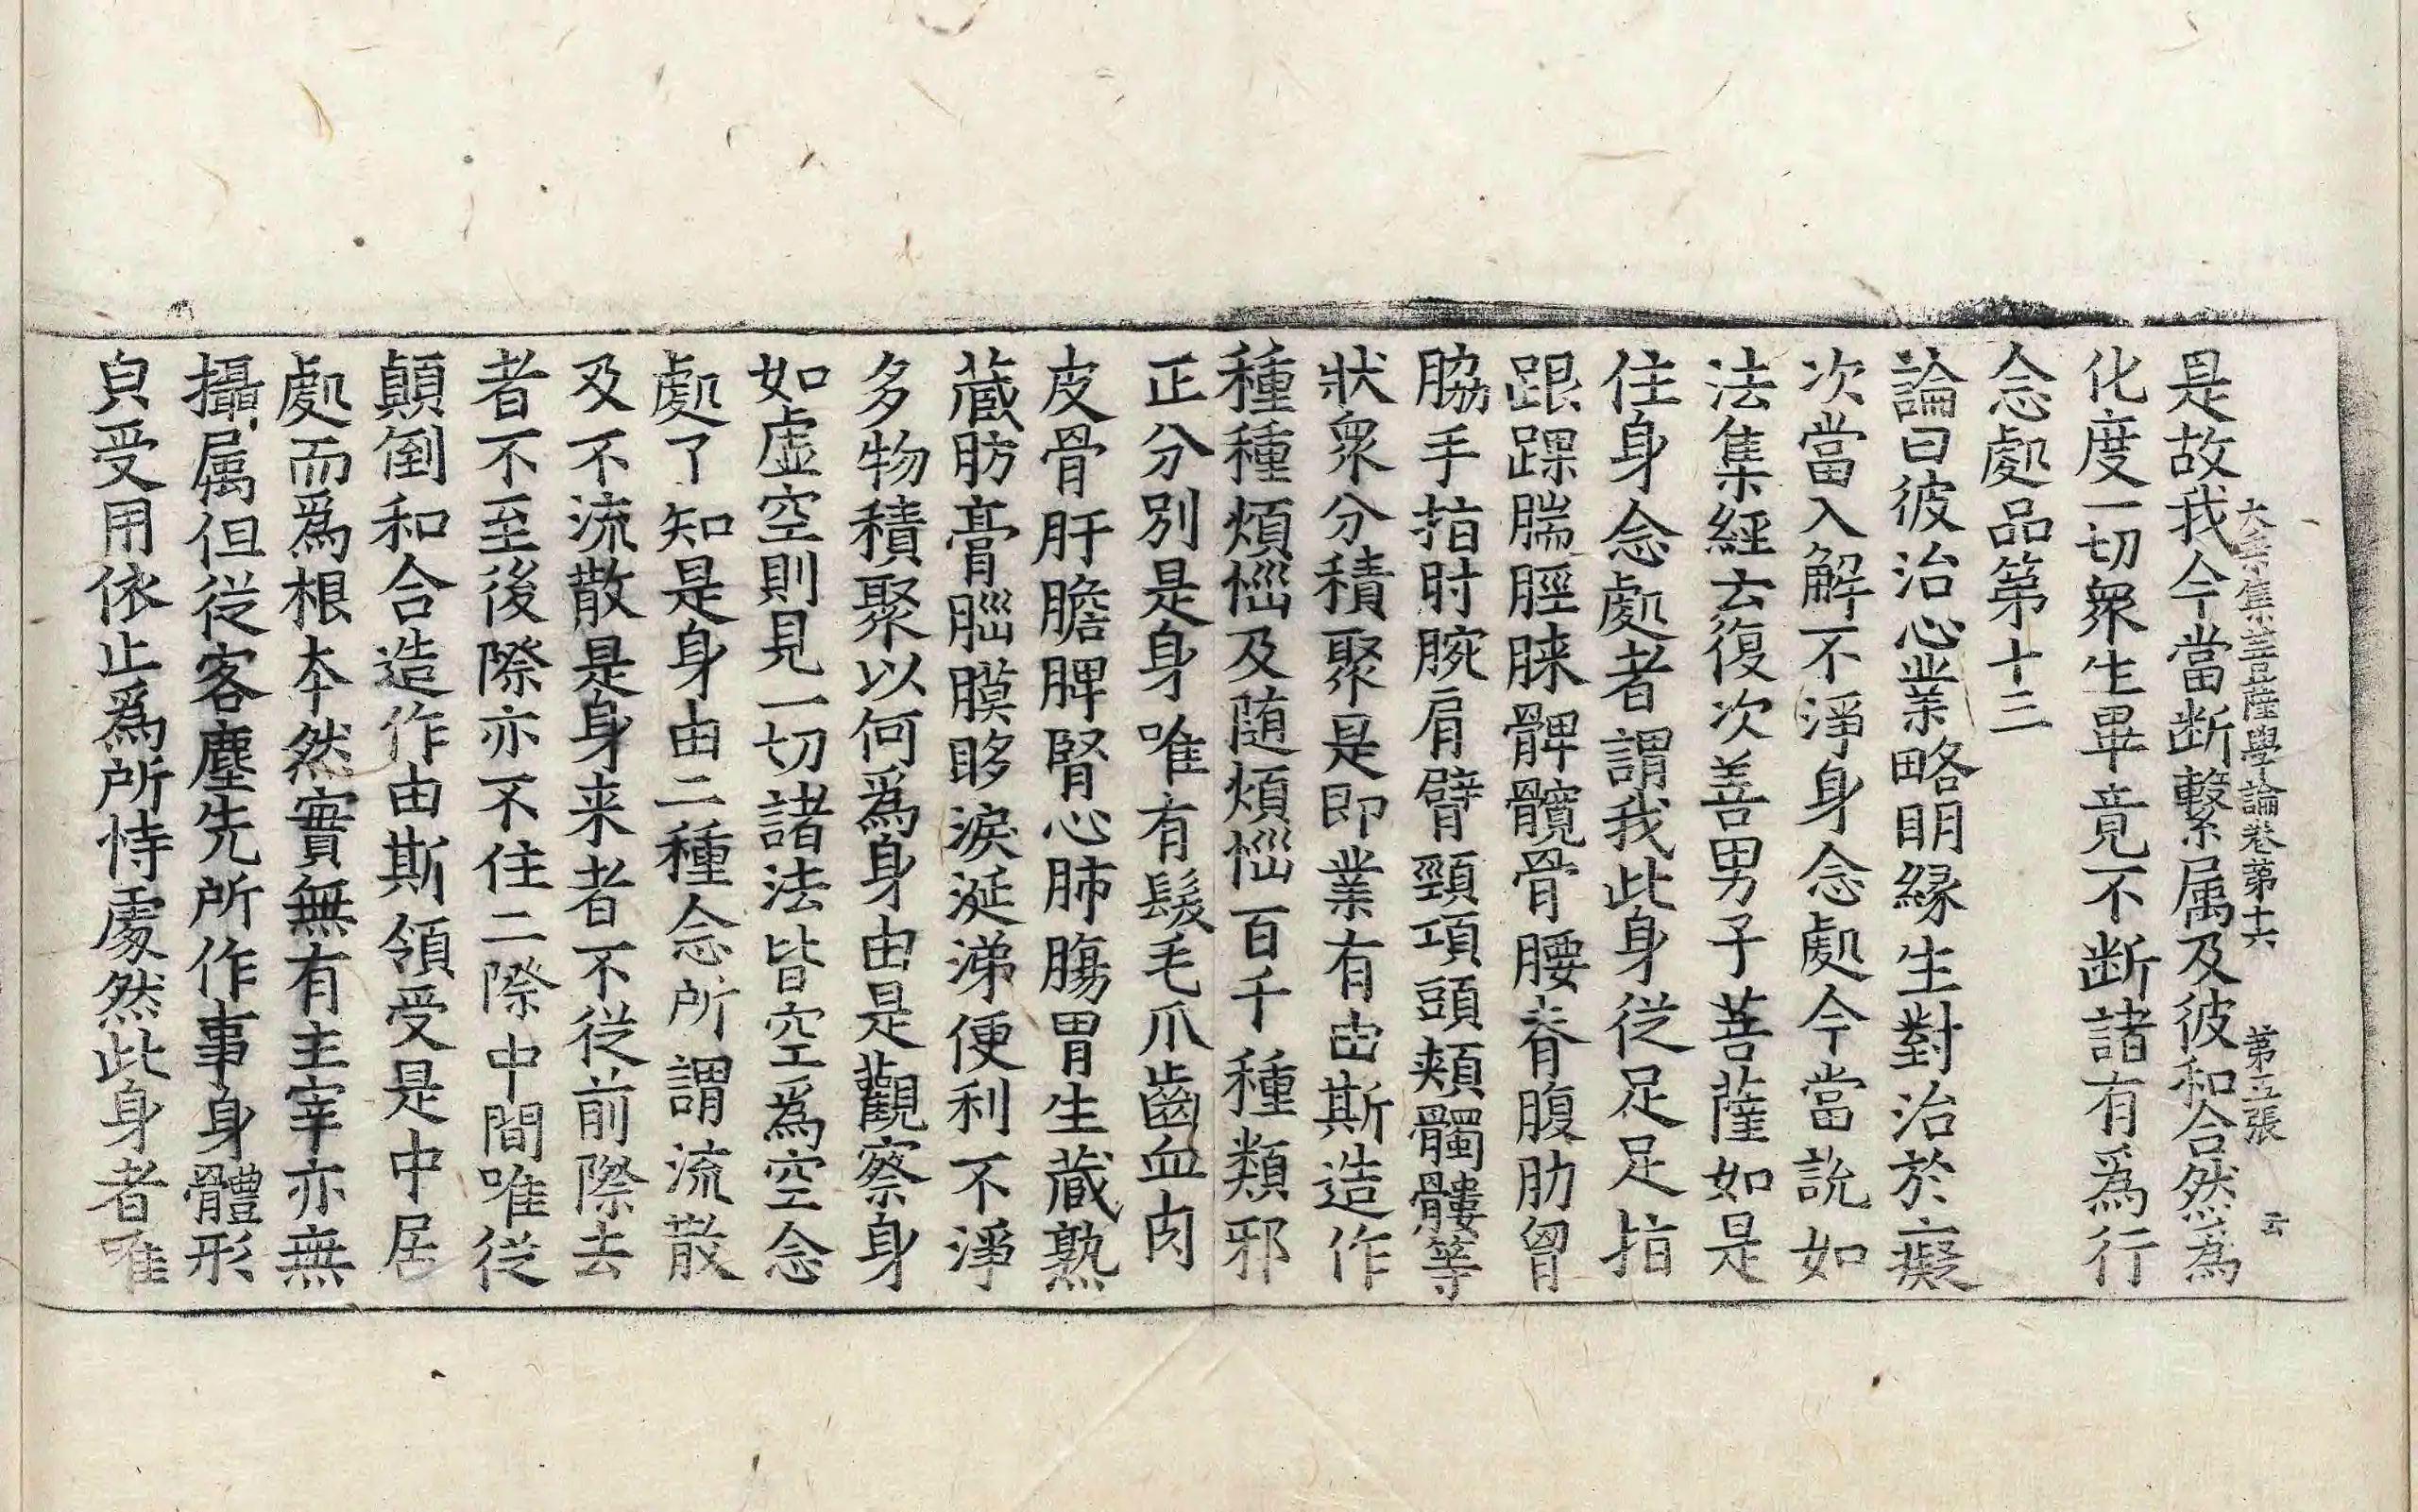 大乘集菩薩學論卷第十六 第五張 云
是故我今當断繫属及彼和合然為
化度一切衆生畢竟不断諸有為行
念處品第十三
論曰彼治心業略明縁生對治於癡
次當入解不淨身念處今當說如
法集經云復次善男子菩薩如是
住身念處者謂我此身從足足指
跟踝腨脛脨髀髖骨腰脊腹肋胷
脇手指肘腕肩臂頸項頭頰髑髏等
狀衆分積聚是即業有由斯造作
種種煩惱及随煩惱百千種類邪
正分別是身唯有髮毛爪齒血肉
皮骨肝膽脾腎心肺腸胃生藏熟
藏肪膏腦膜眵淚涎涕便利不淨
多物積聚以何為身由是觀察身
如虚空則見一切諸法皆空為空念
處了知是身由二種念所謂流散
及不流散是身来者不從前際去
者不至後際亦不住二際中間唯從
顛倒和合造作由斯領受是中居
處而為根本然實無有主宰亦無
攝属但從客塵先所作事身體形
皃受用依止為所恃處然此身者唯